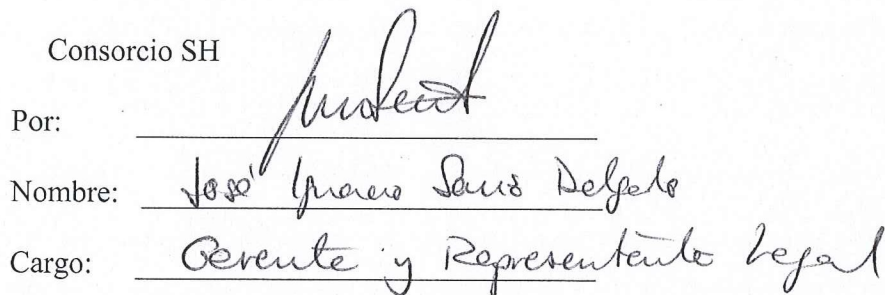 Consorcio SH
Por:
Nombre: José Ignacio Sanz Delgado
Cargo: Gerente y Representante Legal